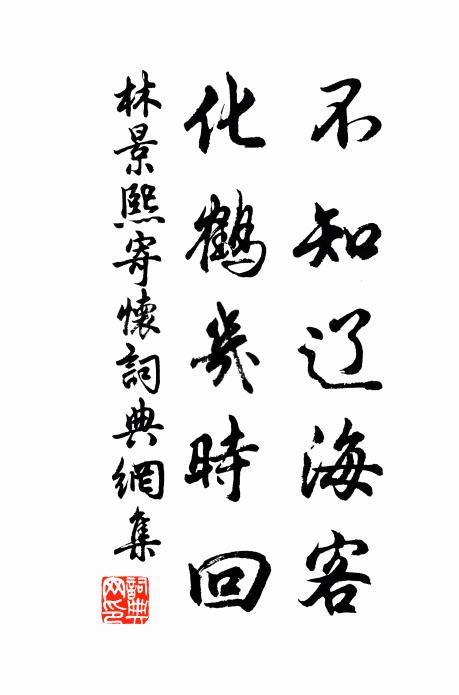 不知辽海客
化鹤幾時回
林景熙寄懷詞典網集
詞典网印